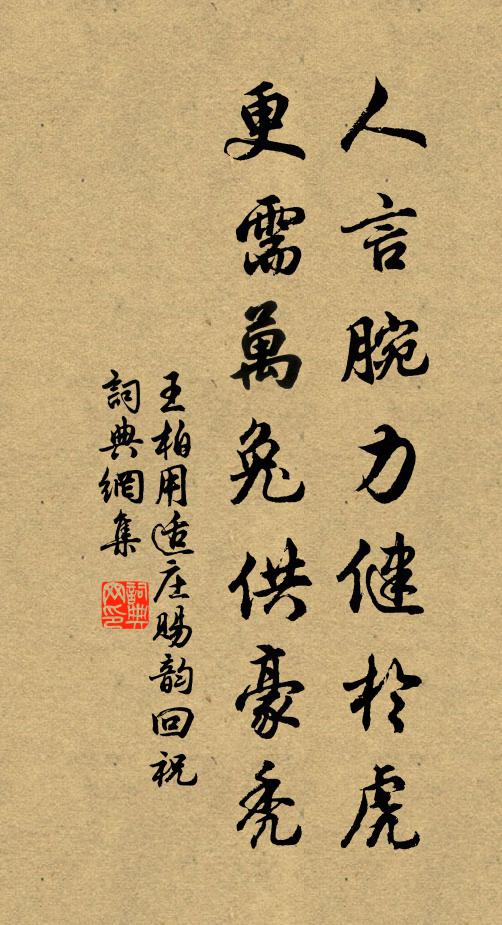 人言腕力健於虎
更需萬兔供豪禿
王柏用适庄賜韵回祝
詞典網集
詞典網印